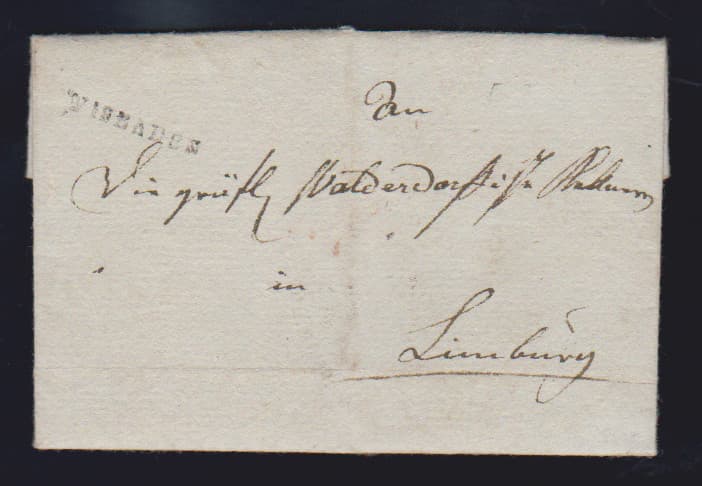 WISBADEN
An
Die gräfl Walderdorffische Kellerei
in
Limburg